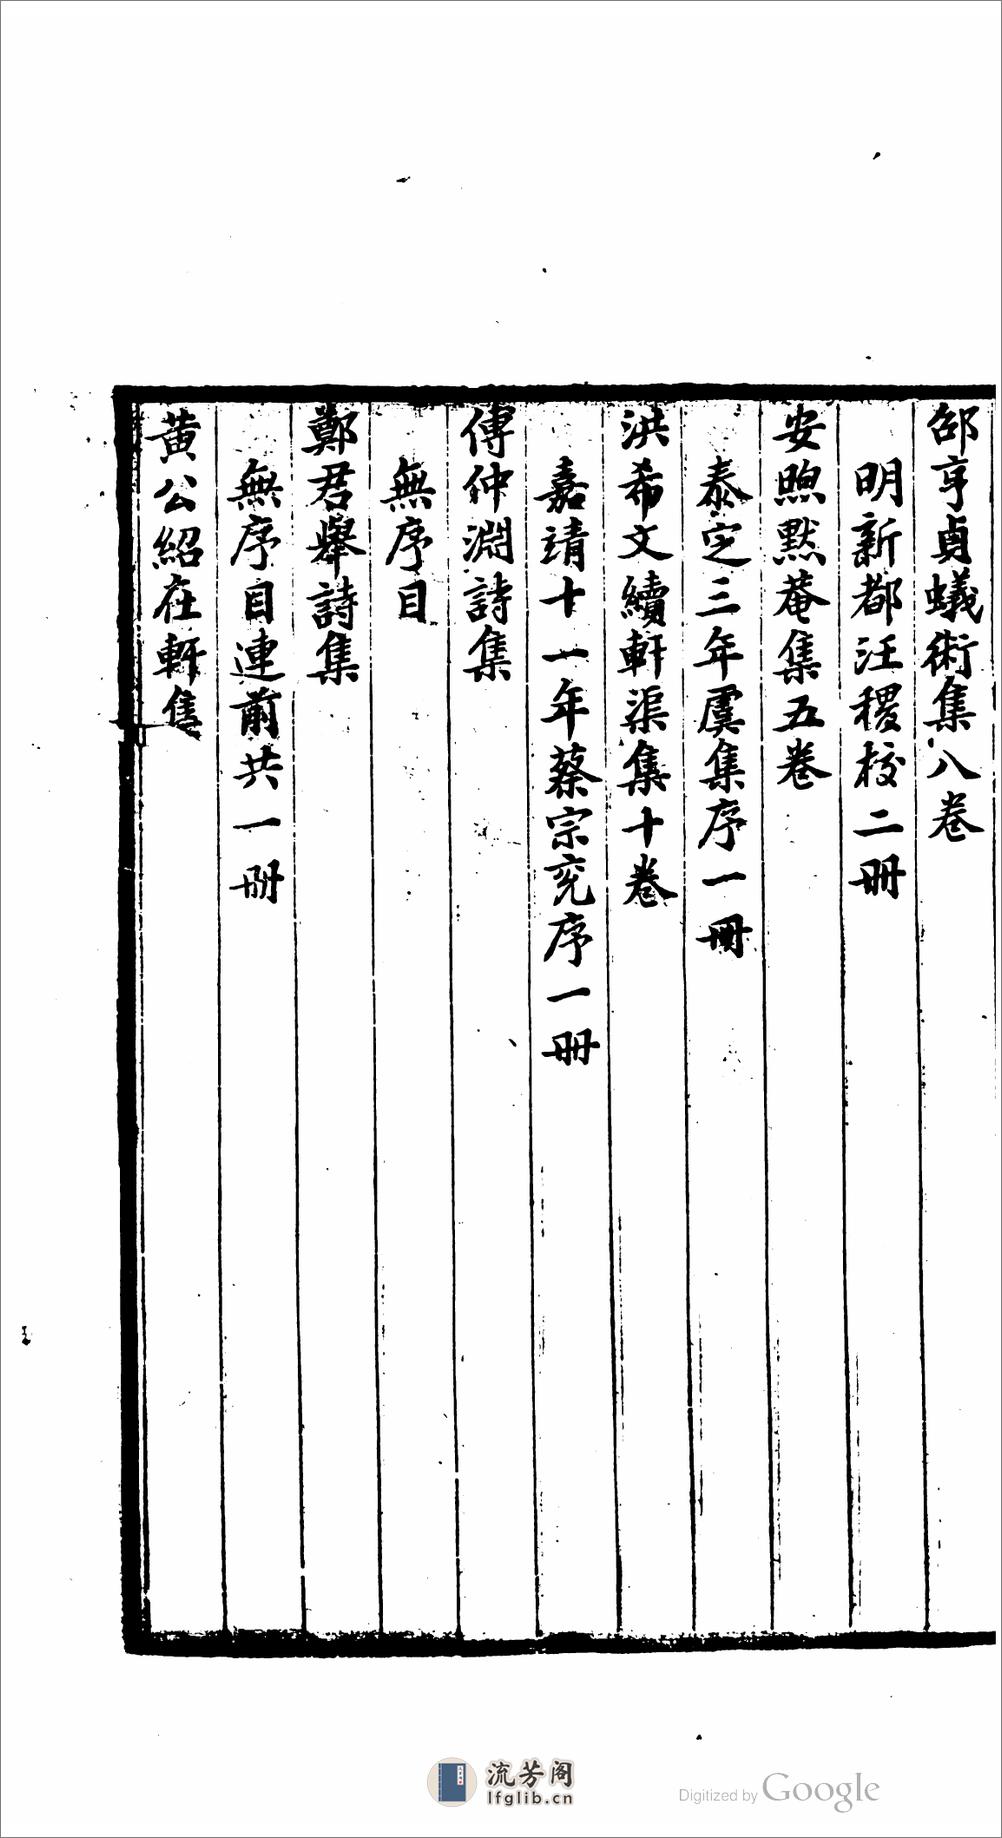 邵亨貞蟻術集八卷
明新都汪稷校二冊
安煦默菴集五卷
泰定三年虞集序一冊
洪希文續軒渠集十卷
嘉靖十一年蔡宗兖序一冊
傅仲淵詩集
無序目
鄭君舉詩集
無序目連前共一冊
黃公紹在軒集
流芳阁
lfglib.cn
Digitized by Google